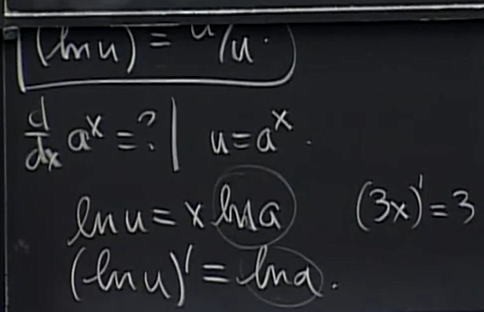 (ln u)' = u'/u.
d/dx a^x = ? | u = a^x.
ln u = x ln a (3x)' = 3
(ln u)' = ln a.